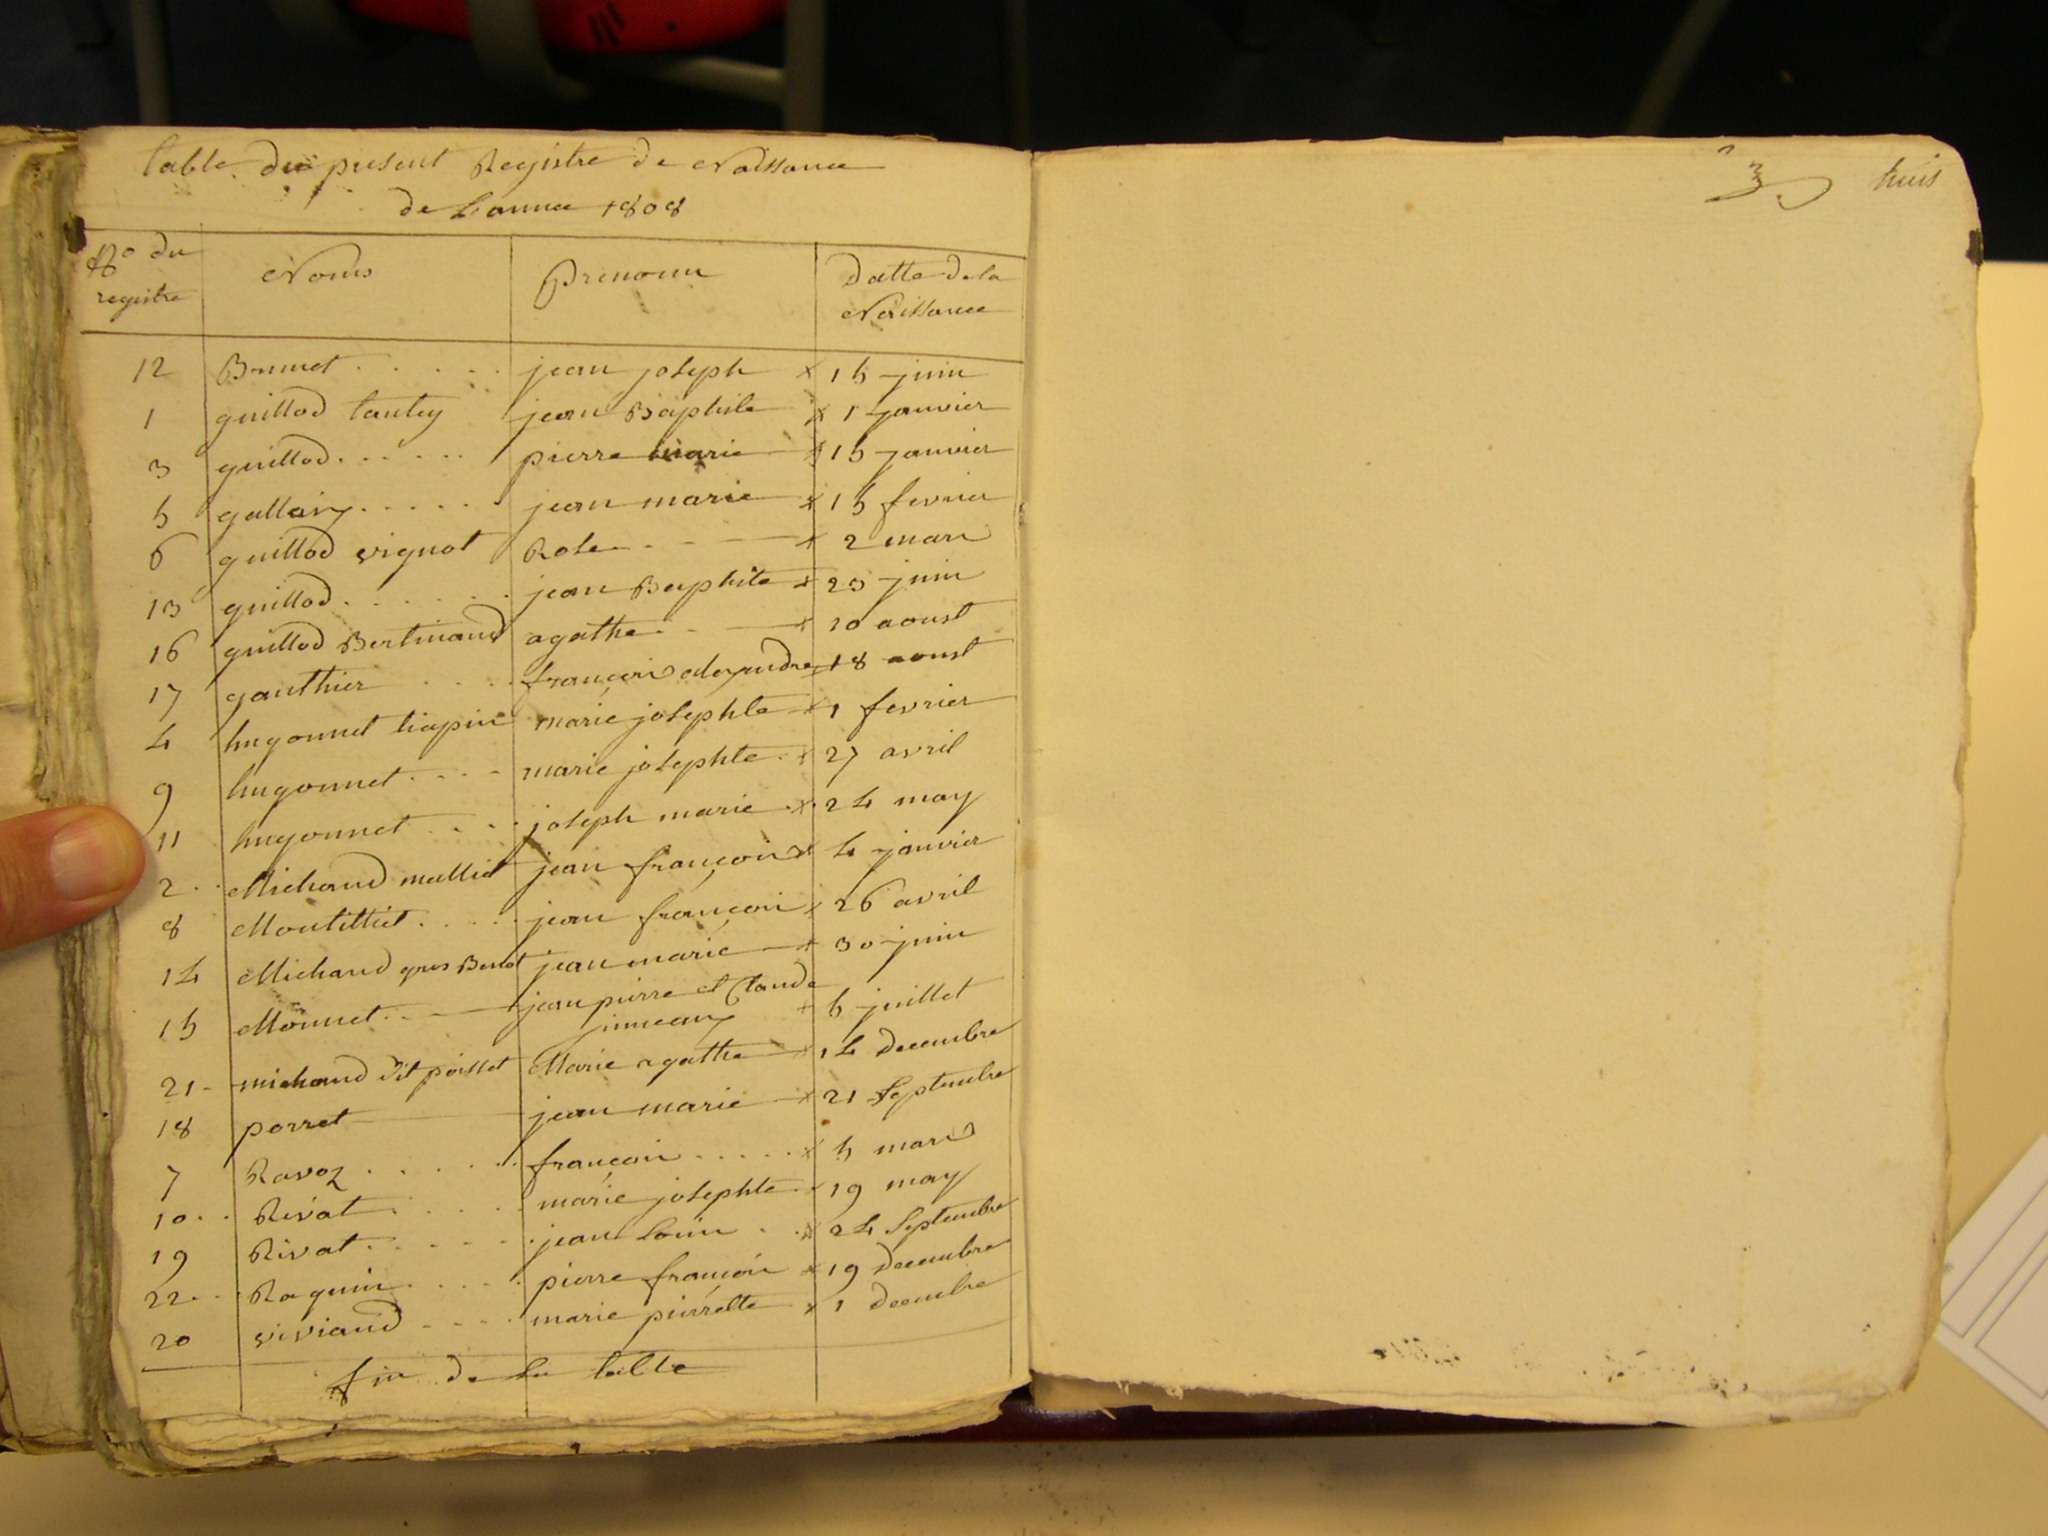 table du present Registre de Naissance
de L'annee 1808
No du registre Noms Prenoms Datte de la Naissance
12 Brunet jean joseph x 15 juin
1 guillod tantey jean Baptiste x 1 janvier
3 guillod pierre marie x 15 janvier
5 gallay jean marie x 15 fevrier
6 guillod vignot Rose x 2 mars
13 guillod jean Baptiste x 23 juin
16 guillod Bertinand agathe x 10 aoust
17 gauthier françois alexandre x 18 aoust
4 hugonnet tiapin marie josephte x 1 fevrier
9 hugonnet marie josephte x 27 avril
11 hugonnet joseph marie x 24 may
2 Michaud mallict jean françois x 4 janvier
8 Moutilliet jean françois x 26 avril
14 Michaud gros Benot jean marie x 30 juin
15 Monnet jean pierre et Claude jumeaux + 5 juillet
21 michaud dit poisset Marie agathe x 14 decembre
18 perret jean marie x 21 Septembre
7 Ravoz françois x 5 mars
10 Rivat marie josephte x 19 may
19 Rivat jean Louis x 24 Septembre
22 Raquin pierre françois x 19 decembre
20 viviand marie pierrette x 1 decembre
fin de la table
huis